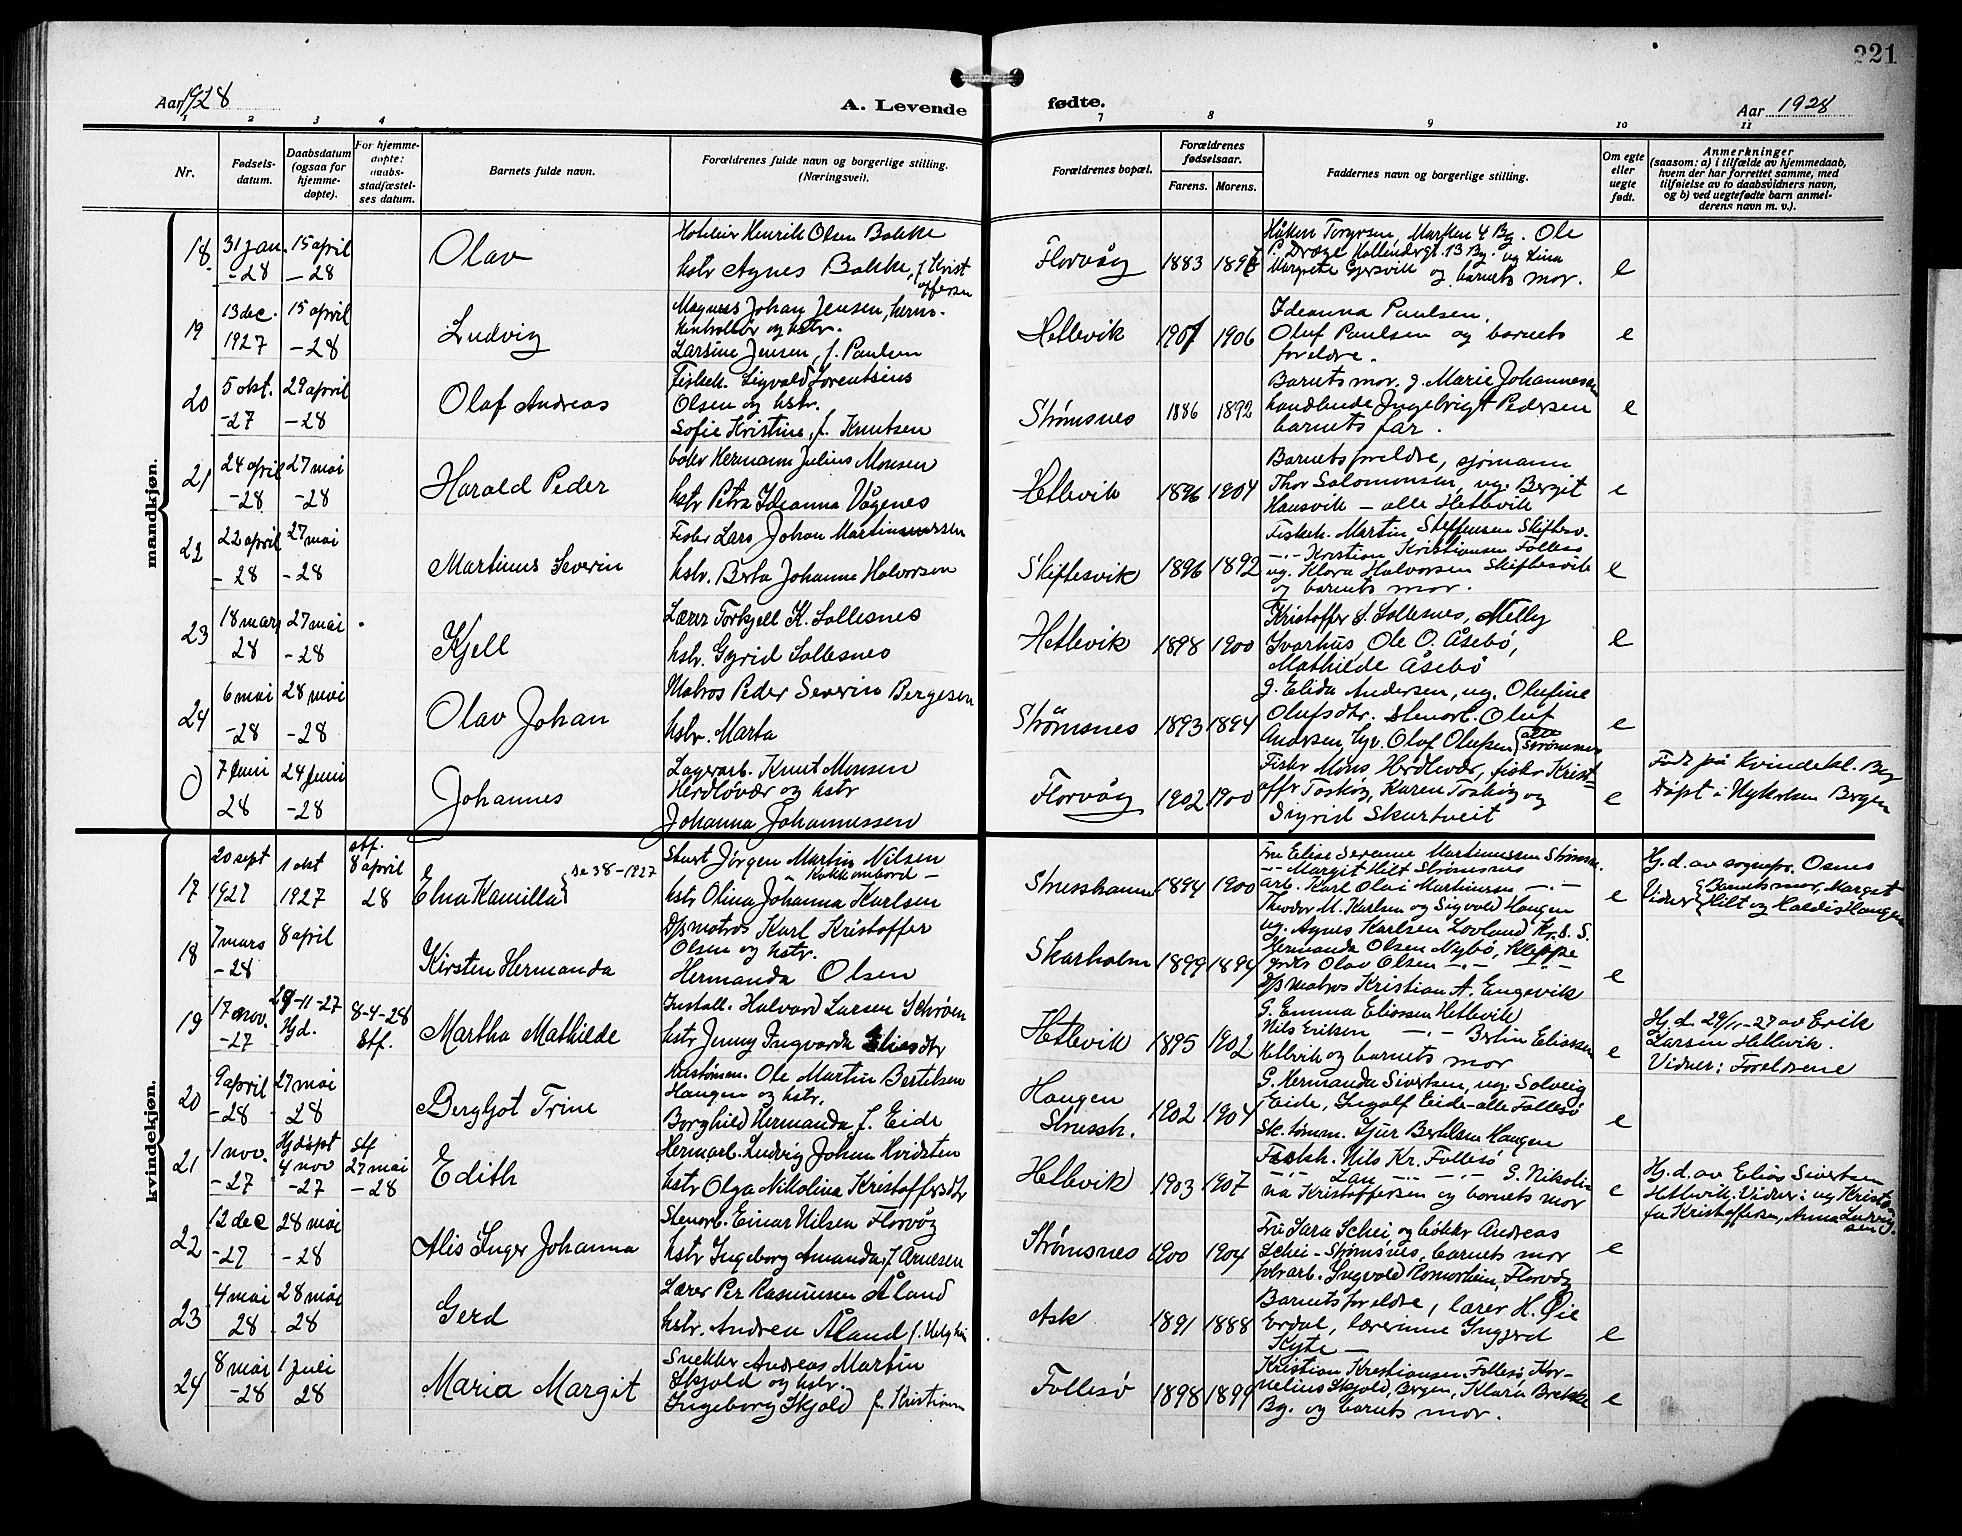 221
Aar 1928
A. Levende
fødte.
Aar 1928
1 2 3 4
7 8 9 10 11
Nr.
Fødsels-
datum.
Daabsdatum
(ogsaa for
hjemme-
døpte).
For hjemme-
døpte:
daabs-
stadfæstel-
ses datum.
Barnets fulde navn.
Forældrenes fulde navn og borgerlige stilling.
(Næringsvei).
Forældrenes bopæl.
Forældrenes
fødselsaar.
Farens. Morens.
Faddernes navn og borgerlige stilling.
Om egte
eller
uegte
født.
Anmerkninger
(saasom: a) i tilfælde av hjemmedaab,
hvem der har forrettet samme, med
tilføielse av to daabsvidners navn,
og b) ved uegtefødte barn anmel-
derens navn m. v.).
mandkjøn.
18 31 jan. -28
15 april -28
Olav
Henrik Olsen Bakke
hstr Agnes Bakke, f Krist
offersen
Florvåg 1883
Håken Torgersen, Marken 4 Bg. Ole
P. Drage Hollendergt. 13 Bg. og Lina
Margrete Gjersvik og barnets mor.
e
19 13 dec. 1927
15 april -28
Ludvig
Magnus Johan Jensen, herm.
kontrollør og hstr.
Larsine Jensen, f. Paulsen
Hetlevik 1901 1906
Ideanna Paulsen,
Oluf Paulsen og barnets
foreldre.
e
20 5 okt. -27
29 april -28
Olaf Andreas
Fiskeh. Sigvald Lorentsius
Olsen og hstr.
Sofie Kristine, f. Knutsen
Strømsnes 1886 1892
Barnets mor, g. Marie Johannesen
handlende Ingebrigt Pedersen
barnets far.
e
21 24 april -28
27 mai -28
Harald Peder
Hermann Julius Monsen
hstr Petra Ideanna Vågenes
Hetlevik 1896 1904
Barnets foreldre, sjømann
Thor Salomonsen, ug. Bergit
Hausvik – alle Hetlevik
e
22 22 april -28
27 mai -28
Martinus Severin
Fisker Lars Johan Martinussen
hstr. Berta Johanne Halvorsen
Skiftesvik 1896 1892
Fiskeh. Martin Steffensen Skiftesv.
-"- Kristian Kristiansen Follesø
ug. Klara Halvorsen Skiftesvik
og barnets mor.
e
23 18 mars 28
27 mai -28
Kjell
Lærer Torkjell K. Sollesnes
hstr. Gyrid Sollesnes
Hetlevik 1898 1900
Kristoffer S. Sollesnes, Melly
Svarhus, Ole O. Åsebø,
Mathilde Åsebø
e
24 6 mai -28
28 mai -28
Olav Johan
Matros Peder Severin Bergesen
hstr. Marta
Strømsnes 1893 1894
g. Elida Andersen, ug. Olufine
Olufsdtr. Stenarb. Oluf
Andersen, Olaf Olufsen alle Strømsnes
e
0 7 Juni 28
24 Juni -28
Johannes
Lagerarb. Knut Monsen
Herdlevær og hstr
Johanna Johannessen
Florvåg 1902 1900
Fisker Møns Herdlevær, fisker Krist-
offer Toskøg, Karen Toskøg og
Sigrid Skurtveit
e
Født på Kvindekl. Bg
Døpt i Nykirken Bergen
kvindekjøn.
17 20 sept 1927
1 okt 1927
stf. 8 april 28
Elna Kamilla se 38-1927
Stuert Jørgen Martin Nilsen
hstr Olina Johanna Karlsen
Strusshamn 1894 1900
Fru Elise Serenne Martinussen Strømsn.
-"- Margit Hilt Strømsnes
arb. Karl Olai Martinsen -"-
Theodor M. Karlsen og Sigvald Haugen
e
Hj.d. av sognepr. Osnes
Vidner Barnets mor, Margit
Hilt og Haldis Haugen
18 7 mars -28
8 april
Kirsten Hermanda
D/s matros Karl Kristoffer
Olsen og hstr.
Hermanda Olsen
Skarholm 1899 1894
ug. Agnes Karlsen Lovland Kr.S. S.
Hermanda Olsen Mybø, Kleppe
Olav Olsen -"- -"-
D/s matros Kristian A. Engevik
e
19 17 nov. -27
29-11-27 Hjd.
8-4-28 Stf.
Martha Mathilde
Install. Halvard Larsen Schrøen
hstr Jenny Ingvarda Eliasdtr
Hetlevik 1895 1902
G. Emma Eliassen Hetlevik
Nils Eriksen -"- Berlin Eliassen
Hetlevik og barnets mor
e
Hj.d. 29/11-27 av Erik
Larsen Hetlevik.
Vidner: Foreldrene
20 9 april -28
27 mai 28
Bergljot Trine
Ole Martin Bertelsen
Haugen og hstr.
Borghild Hermanda f. Eide
Haugen
Strussh. 1902 1904
G. Hermanda Sivertsen, ug. Solveig
Eide, Ingolf Eide – alle Follesø
Sk.tømm. Sjur Bertelsen Haugen
e
21 1 nov. -27
Hjdøpt 4 nov -27
Stf 27 mai -28
Edith
Hermarb. Ludvig Johan Hvidsten
hstr Olga Nikolina Kristoffersdtr
Hetlevik 1903 1907
Fiskh. Nils Kr. Follesø
-"- Lars -"- -"- G. Nikolin
na Kristoffersen og barnets mor
e
Hj.d. av Elias Sivertsen
Hetlevik. Vidner: ug Kristof
fer Kristoffersen, Anna Ludvig
sen.
22 12 dec -27
28 mai -28
Alis Inger Johanna
Stenarb. Einar Nilsen Florvåg
hstr Ingeborg Amanda, f Arnesen
Strømsnes 1900 1904
Fru Sara Schei, og bøkker Andreas
Schei – Strømsnes, barnets mor
Ingvald Romarheim, Florvåg
e
23 4 mai 28
28 mai 28
Gerd
Lærer Per Rasmussen Åland
hstr. Andrea Åland f. Helgheim
Ask 1891 1888
Barnets foreldre, lærer H. Øie
Erdal, lærerinne Ingjerd
Kyte –
e
24 8 mai -28
1 juli 28
Maria Margit
Snekker Andreas Martin
Skjold og hstr.
Ingeborg Skjold f. Kristians
Follesø 1898 1899
Kristian Kristiansen, Follesø, Kor-
nelius Skjold, Bergen, Klara Brekke
Bg. og barnets mor.
e